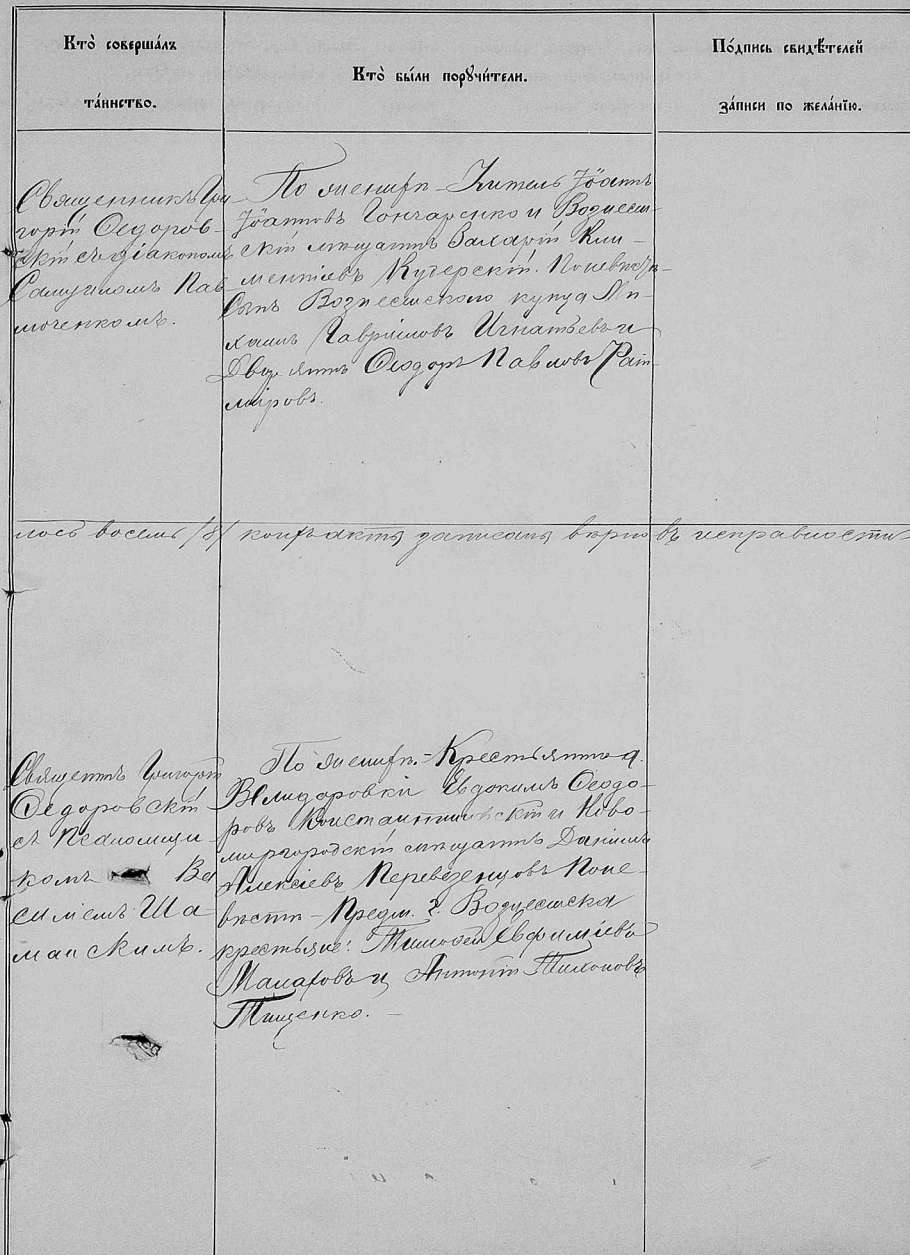 Кто̀ соверша́лъ
та́инство.
Кто̀ бы́ли порꙋчи́тели.
По́дпись свидѣ́телей
за́писи по жела́нїю.
Священникъ Гри-
горій Ѳедоров-
скій съ діакономъ
Самуиломъ Пав-
люченкомъ.
По женихѣ - Житель Іоаннъ
Іоанновъ Гончаренко и Вознесен-
скій мѣщанинъ Захарій Кли-
ментіевъ Кучерскій. По невѣстѣ
Сынъ Вознесенскаго купца Ми-
хаилъ Гавріиловъ Игнатьевъ и
Двор-янинъ Ѳеодоръ Павловъ Рат-
міровъ.
лось восемь /8/ записаны вѣрно въ исправности
Священникъ Григорій
Ѳедоровскій
съ псаломщи-
комъ Ва
силіемъ Ша-
манскимъ.
По женихѣ. - Крестьянинъ д.
Евдокимъ Ѳеодо-
ровъ и Ново-
миргородскій мѣщанинъ Даніилъ
Алексіевъ Перевезенцовъ По не-
вѣстѣ - Предм. г. Вознесенска
крестьяне: Тимоѳей Евфиміевъ
Малаховъ и Антоній Тихоновъ
Тищенко. -